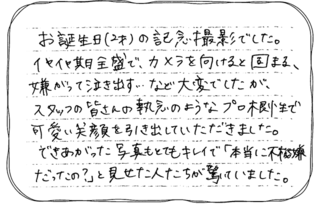 お誕生日(2才)の記念撮影でした。
イヤイヤ期全盛で、カメラを向けると固まる、
嫌がって泣き出す…など大変でしたが、
スタッフの皆さんの執念のようなプロ根性で
可愛い笑顔を引き出していただきました。
できあがった写真もとてもキレイで「本当に不機嫌
だったの?」と見せた人たちが驚いていました。